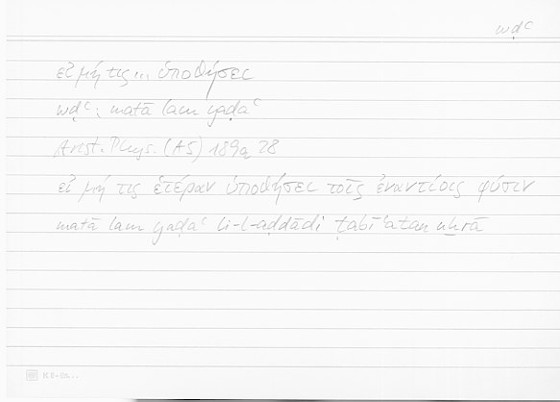 wḍʿ
εἰ μή τις ... ὑποθήσει
wḍʿ; matā lam yaḍaʿ
Arist. Phys. (A5) 189a 28
εἰ μή τις ἑτέραν ὑποθήσει τοῖς ἐναντίοις φύσιν
matā lam yaḍaʿ li-l-aḍdādi ṭabīʿatan uḫrā